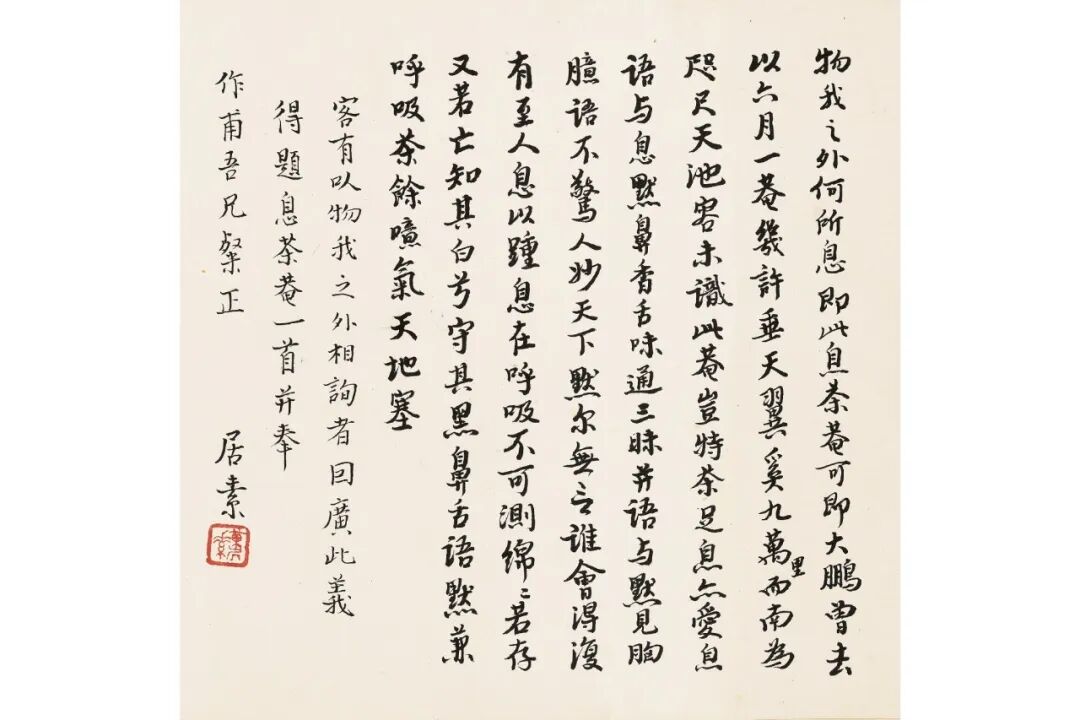 物我之外何所息即此息茶菴可即大鵬曾去
以六月一菴幾許垂天翼奚九萬里而南為
咫尺天池客未識此菴豈特茶足息亦愛息
語与息默鼻香舌味通三昧并語与默見胸
臆語不驚人妙天下默尔無言誰會得復
有至人息以踵息在呼吸不可測綿〻若存
又若亡知其白兮守其黑鼻舌語默兼
呼吸茶餘噫氣天地塞
客有以物我之外相詢者因廣此義
得題息茶菴一首并奉
作甫吾兄粲正
居素